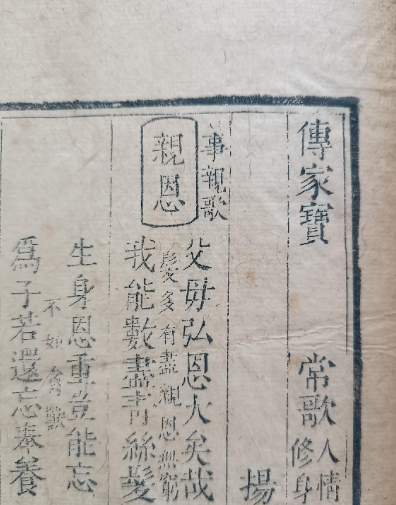 傳家寶 常歌 人情
修身
揚
事親歌
父母弘恩大矣哉
髮多有盡親恩無窮
親恩
我能數盡青絲髮
生身恩重豈能忘
不如禽獸
爲子若還忘奉養